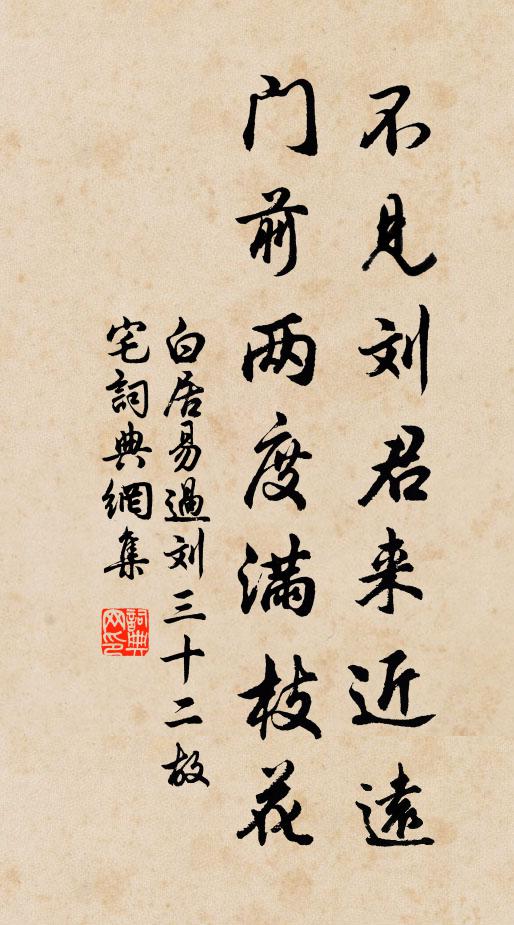 不见刘君来近遠
门前两度满枝花
白居易過刘三十二故
宅詞典網集
詞典
网印